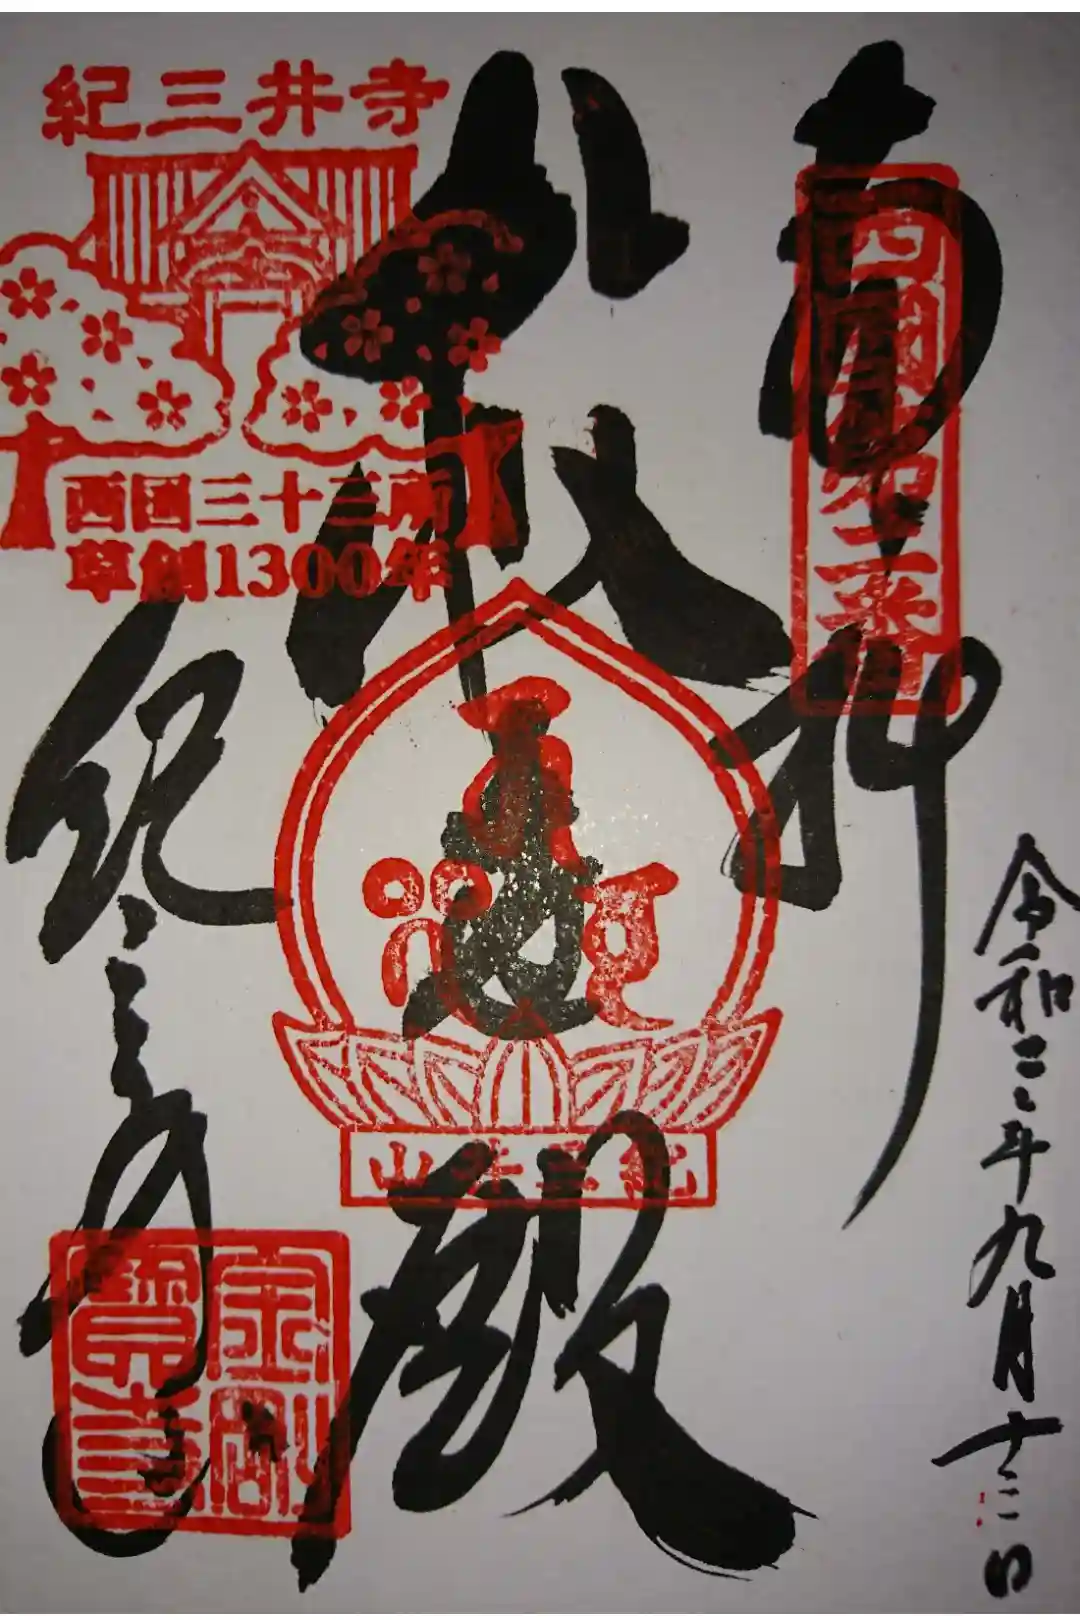 奉拝
西国第二番
令和二年九月十二日
救世殿
紀三井山
紀三井寺
西国三十三所
草創1300年
紀三井寺
金剛寶寺